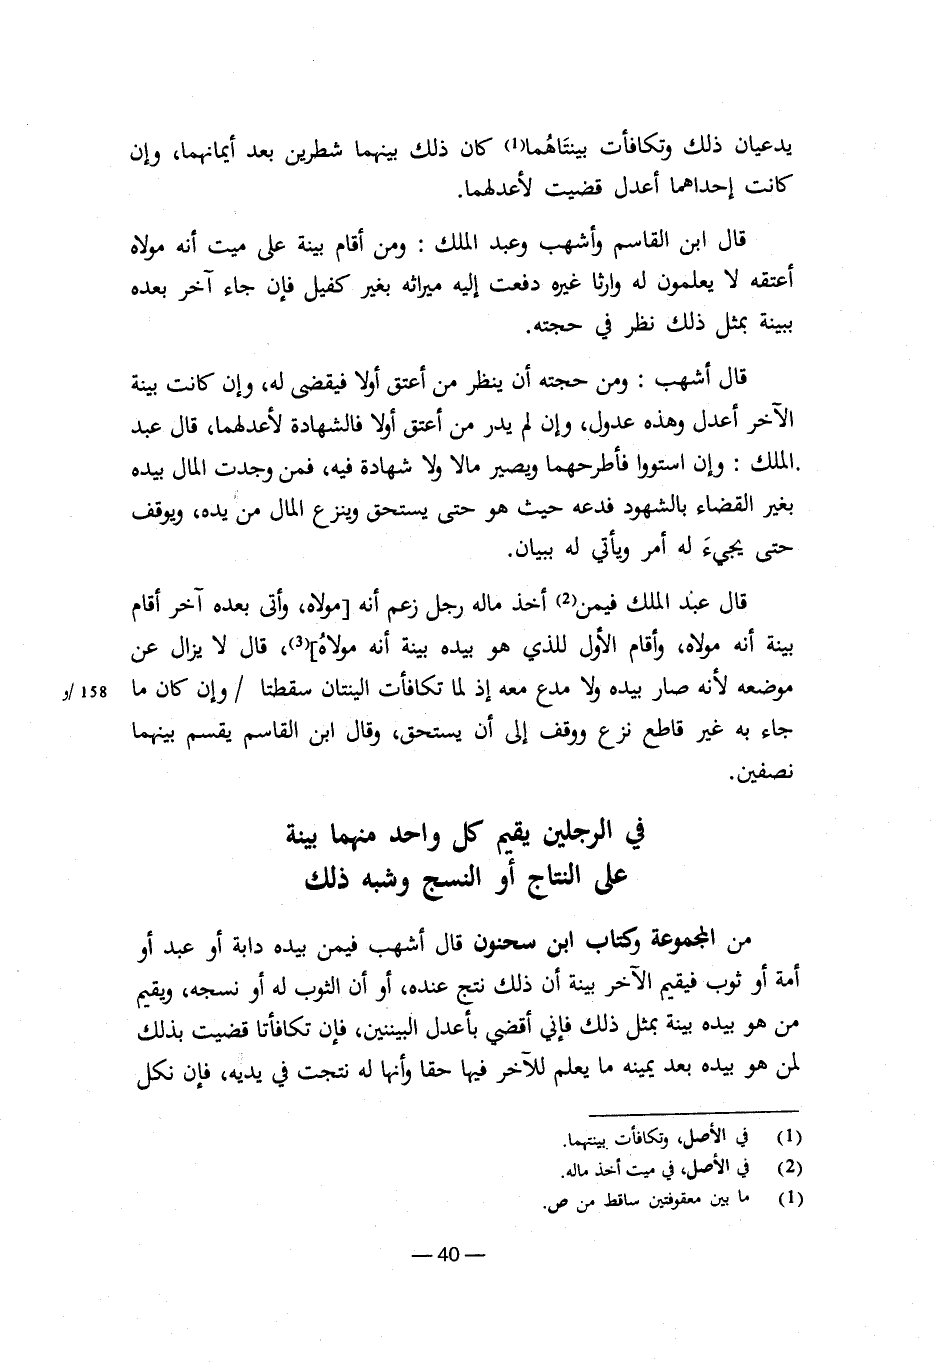 يدعيان ذلك وتكافأت بينتَاهُما(1) كان ذلك بينهما شطرين بعد أيمانهما، وإن
كانت إحداهما أعدل قضيت لأعدلهما.
قال ابن القاسم وأشهب وعبد الملك : ومن أقام بينة على ميت أنه مولاه
أعتقه لا يعلمون له وارثا غيره دفعت إليه ميراثه بغير كفيل فإن جاء آخر بعده
ببينة بمثل ذلك نظر في حجته.
قال أشهب : ومن حجته أن ينظر من أعتق أولا فيقضى له، وإن كانت بينة
الآخر أعدل وهذه عدول، وإن لم يدر من أعتق أولا فالشهادة لأعدلهما، قال عبد
الملك : وإن استووا فأطرحهما ويصير مالا ولا شهادة فيه، فمن وجدت المال بيده
بغير القضاء بالشهود فدعه حيث هو حتى يستحق وينزع المال من يده، ويوقف
حتى يجيءَ له أمر ويأتي له ببيان.
قال عبد الملك فيمن(2) أخذ ماله رجل زعم أنه [مولاه، وأتى بعده آخر أقام
بينة أنه مولاه، وأقام الأول للذي هو بيده بينة أنه مولاهُ](3)، قال لا يزال عن
موضعه لأنه صار بيده ولا مدع معه إذ لما تكافأت الينتان سقطتا / وإن كان ما 158/و
جاء به غير قاطع نزع ووقف إلى أن يستحق، وقال ابن القاسم يقسم بينهما
نصفين.
في الرجلين يقيم كل واحد منهما بينة
على النتاج أو النسج وشبه ذلك
من المجموعة وكتاب ابن سحنون قال أشهب فيمن بيده دابة أو عبد أو
أمة أو ثوب فيقيم الآخر بينة أن ذلك نتج عنده، أو أن الثوب له أو نسجه، ويقيم
من هو بيده بينة بمثل ذلك فإني أقضي بأعدل البيننين، فإن تكافأتا قضيت بذلك
لمن هو بيده بعد يمينه ما يعلم للآخر فيها حقا وأنها له نتجت في يديه، فإن نكل
(1) في الأصل، وتكافأت بينتهما.
(2) في الأصل، في ميت أخذ ماله.
(1) ما بين معقوفتين ساقط من ص.
— 40 —